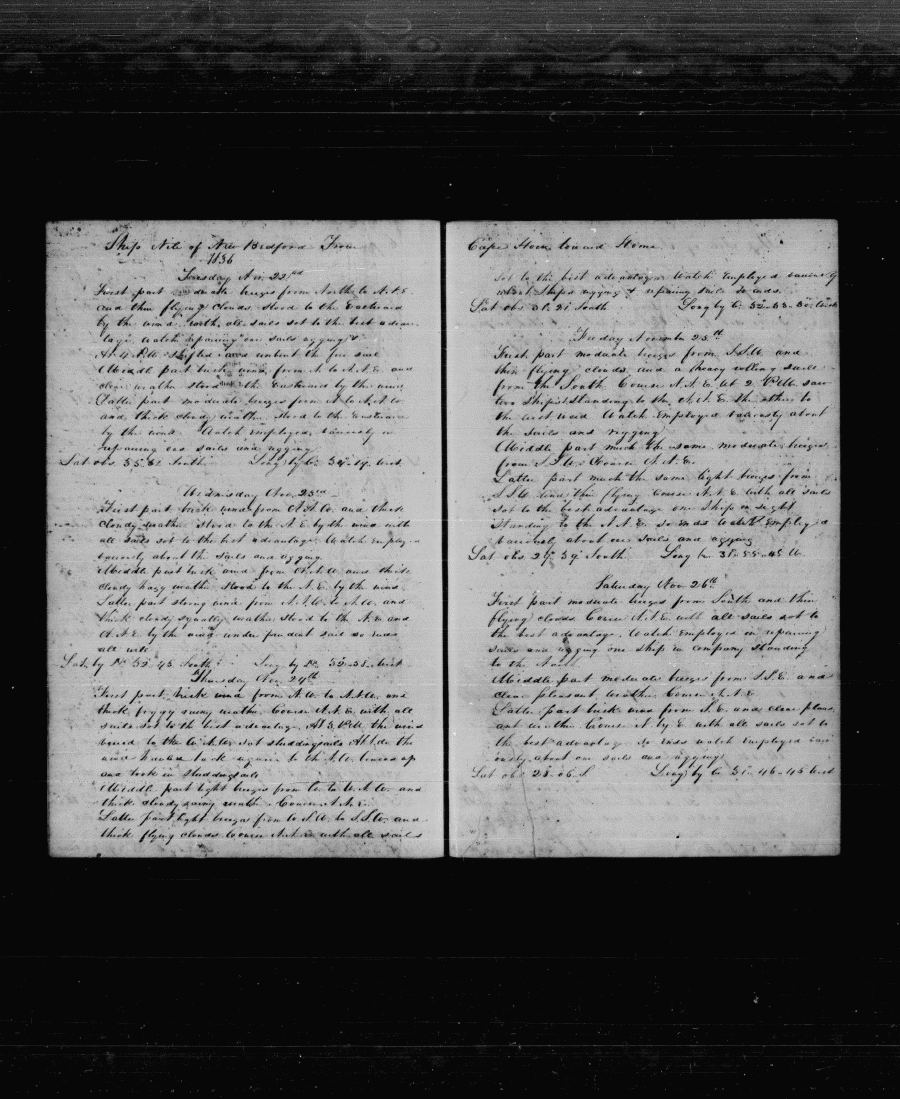 Ship Nile of New Bedford From
1836
Tuesday Nov 22nd
First part moderate breezes from North to N.N.E
and thin flying clouds stood to the Eastward
by the wind with all sails set to the best advan
tage watch repairing our sails rigging &
At 4 P.M. shifted and unbent the fore sail
Middle part brisk wind from N. to N.N.E. and
clear weather stood to the Eastward by the wind
Latter part moderate breezes from N. to N.N.W
and thick cloudy weather stood to the Eastward
by the wind Watch Employed variously in
repairing our sails and rigging
Lat obs 35 South Long by C. 34 West
Wednesday Nov. 23rd
First part brisk wind from N.N.W. and thick
cloudy weather stood to the N.E by the wind with
all sails set to the best advantage Watch Employed
variously about the sails and rigging
Middle part brisk wind from N.N.W and thick
cloudy hazy weather stood to the N.E. by the wind
Latter part strong wind from N.N.W. to N.W. and
thick cloudy squally weather stood to the N.E and
N.N.E. by the wind under prudent sail so ends
all well
Lat. by 45 South Long by West
Thursday Nov. 24th
First part brisk wind from N.W. to N.N.W. and
thick foggy rainy weather Course N.N.E. with all
sails set to the best advantage. At 3 P.M. the wind
to the W.N.W. set studdingsails At the
wind back again to the N.W. braced up
and took in studdingsails
Middle part light breezes from W. to W.N.W. and
thick cloudy rainy weather Course N.N.E.
Latter part light breezes from W.S.W. to S.S.W. and
thick flying clouds Course N.N.E with all sails
Cape Horn toward Home
set to the best advantage Watch Employed variously
about Ships rigging & repairing sails so ends
Lat obs 31 21 South Long by C. 32 33 30 West
Friday November 25th
First part moderate breezes from S.S.W. and
thin flying clouds and a heavy rolling swell
from the South Course N.N.E. At 2 P.M. saw
two Ships Standing to the N.N.E. the other to
the west ward Watch Employed variously about
the sails and rigging
Middle part much the same moderate breezes
from S.S.W. Course N.N.E.
Latter part much the same light breezes from
S.S.W. and thin flying Course N.N.E. with all sails
set to the best advantage one Ship in sight
Standing to the N.N.E. so ends Watch Employed
variously about our sails and rigging
Lat obs 29 39 South Long by 31 55 45 W.
Saturday Nov 26th
First part moderate breezes from South and thin
flying clouds Course N.N.E. with all sails set to
the best advantage. Watch Employed in repairing
sails and rigging one ship in company standing
to the North
Middle part moderate breezes from S.S.E. and
clear pleasant weather Course N.N.E
Latter part brisk wind from S.E. and clear pleas
ant weather Course N by E with all sails set to
the best advantage So ends watch Employed vari
ously about our sails and rigging
Lat obs 28 06 S Long by C 31 46 45 West